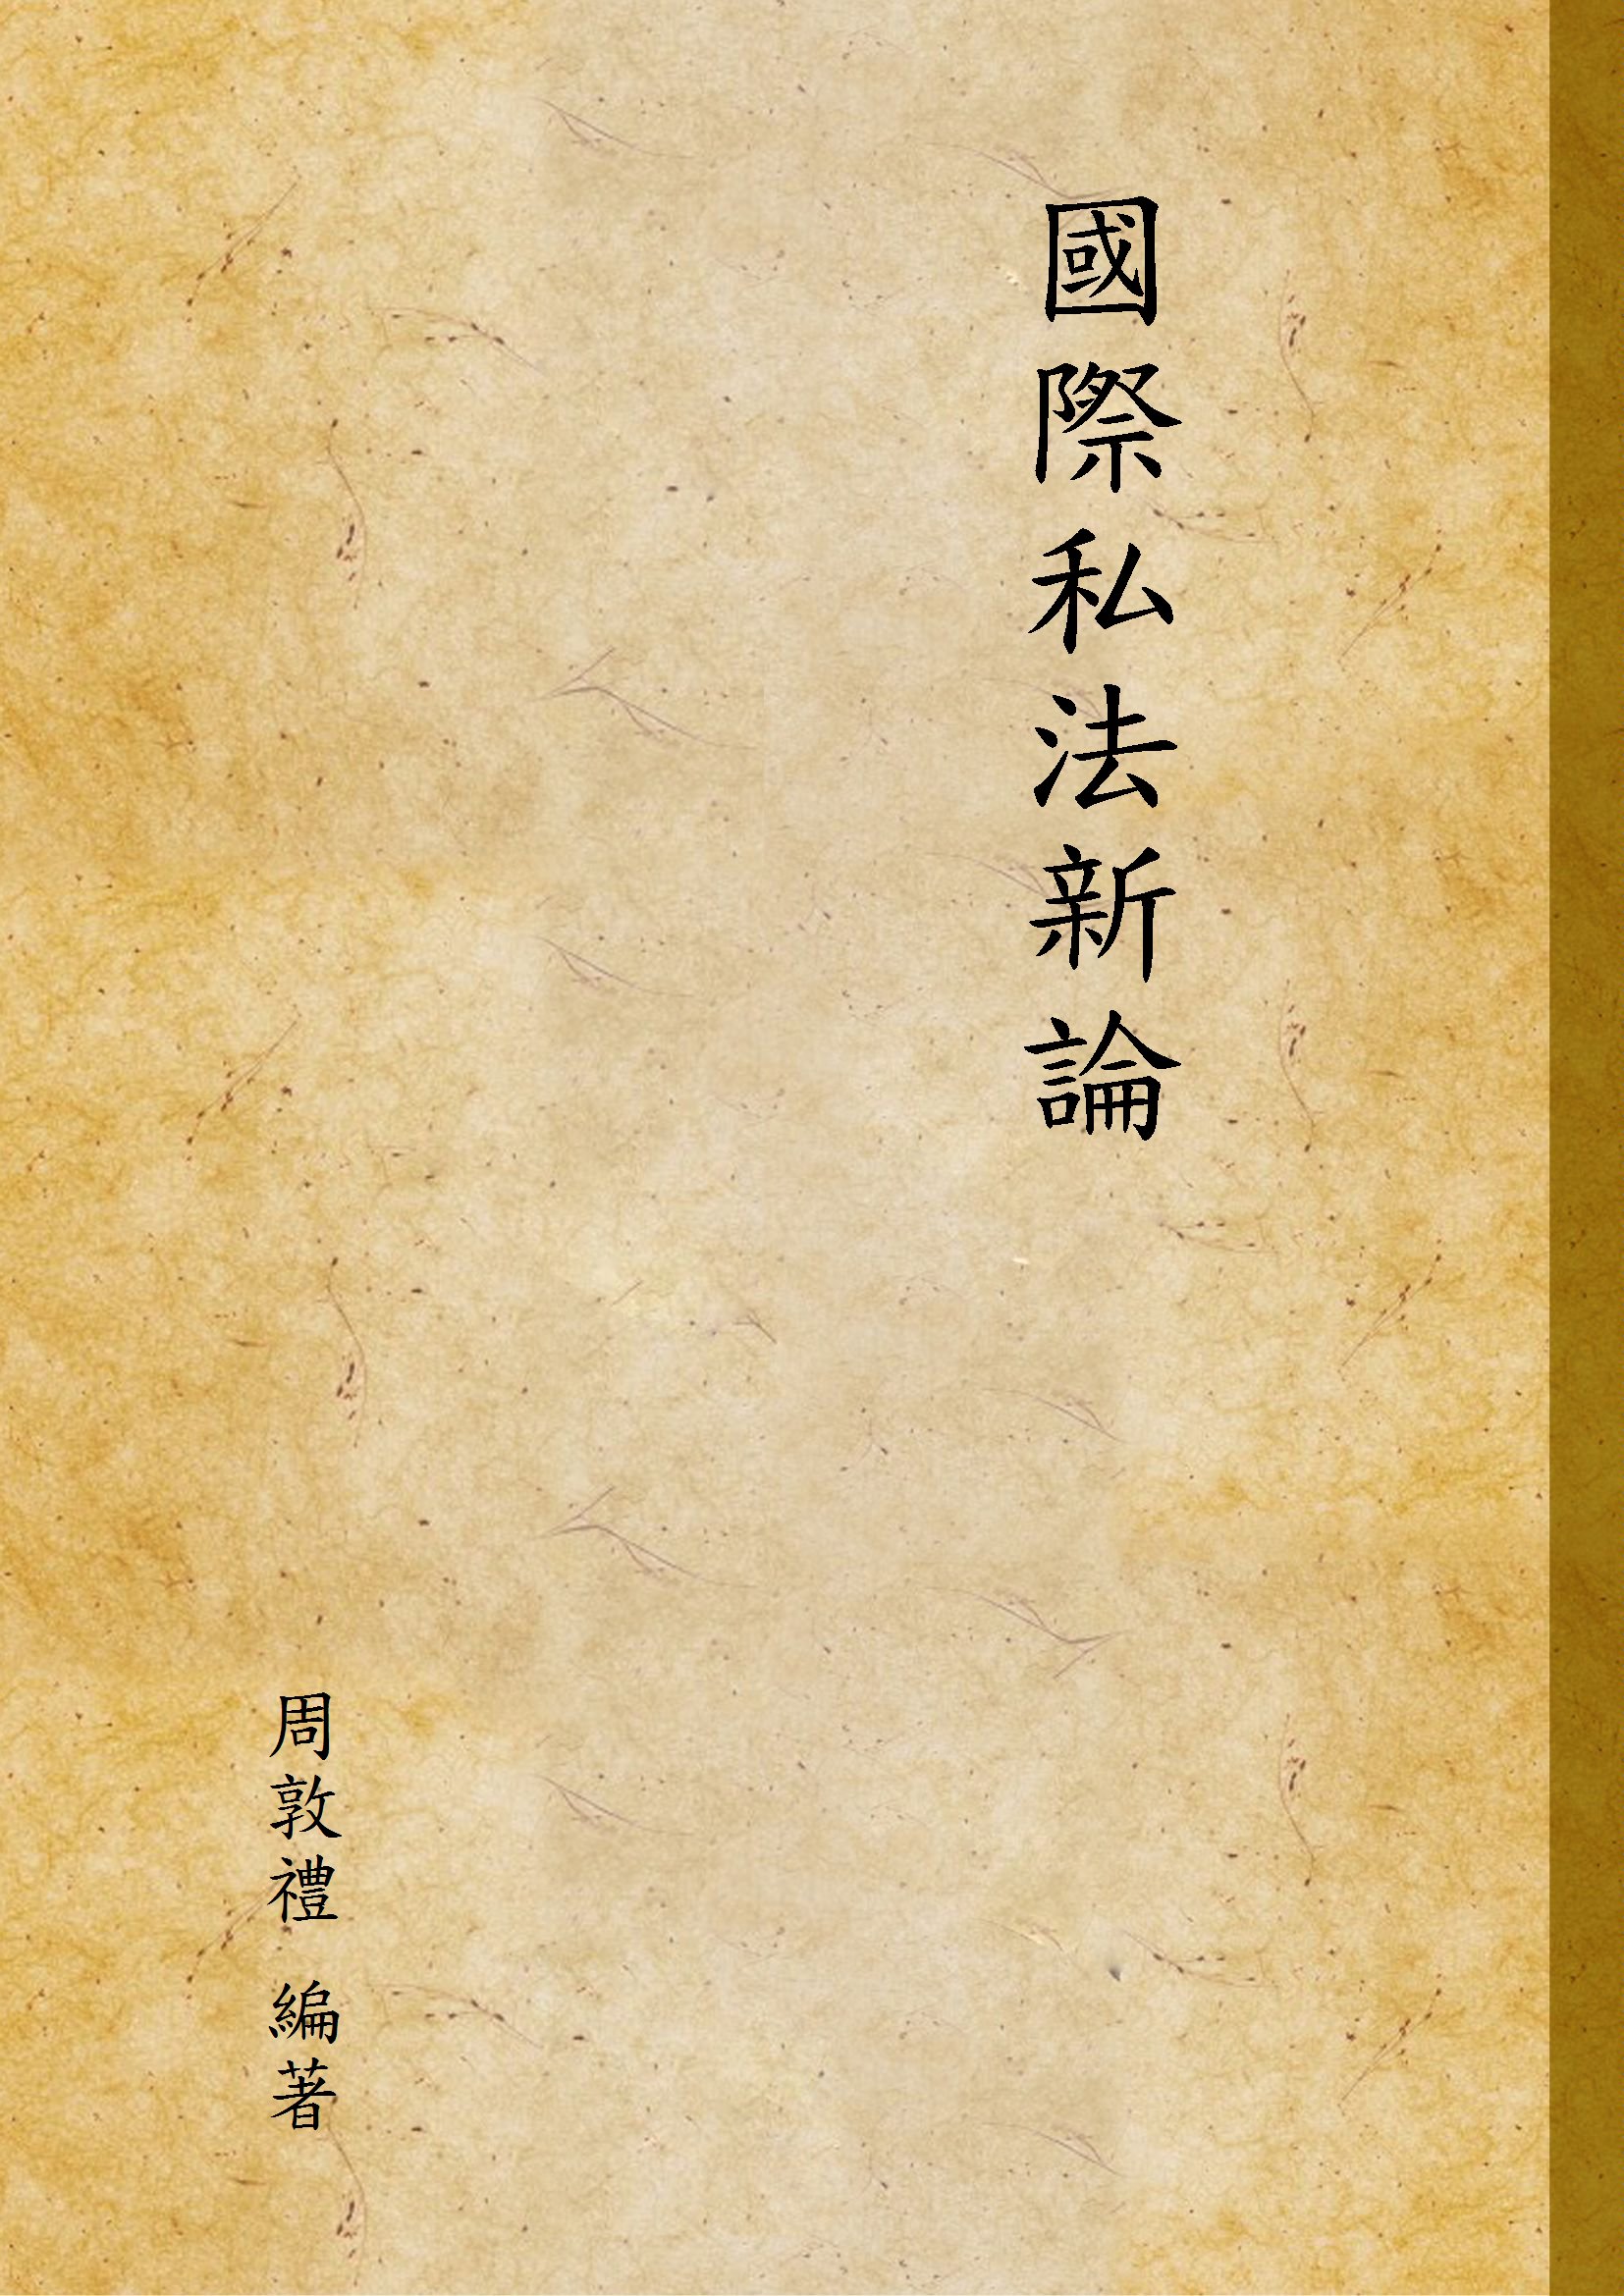 國際私法新論
周敦禮 編著